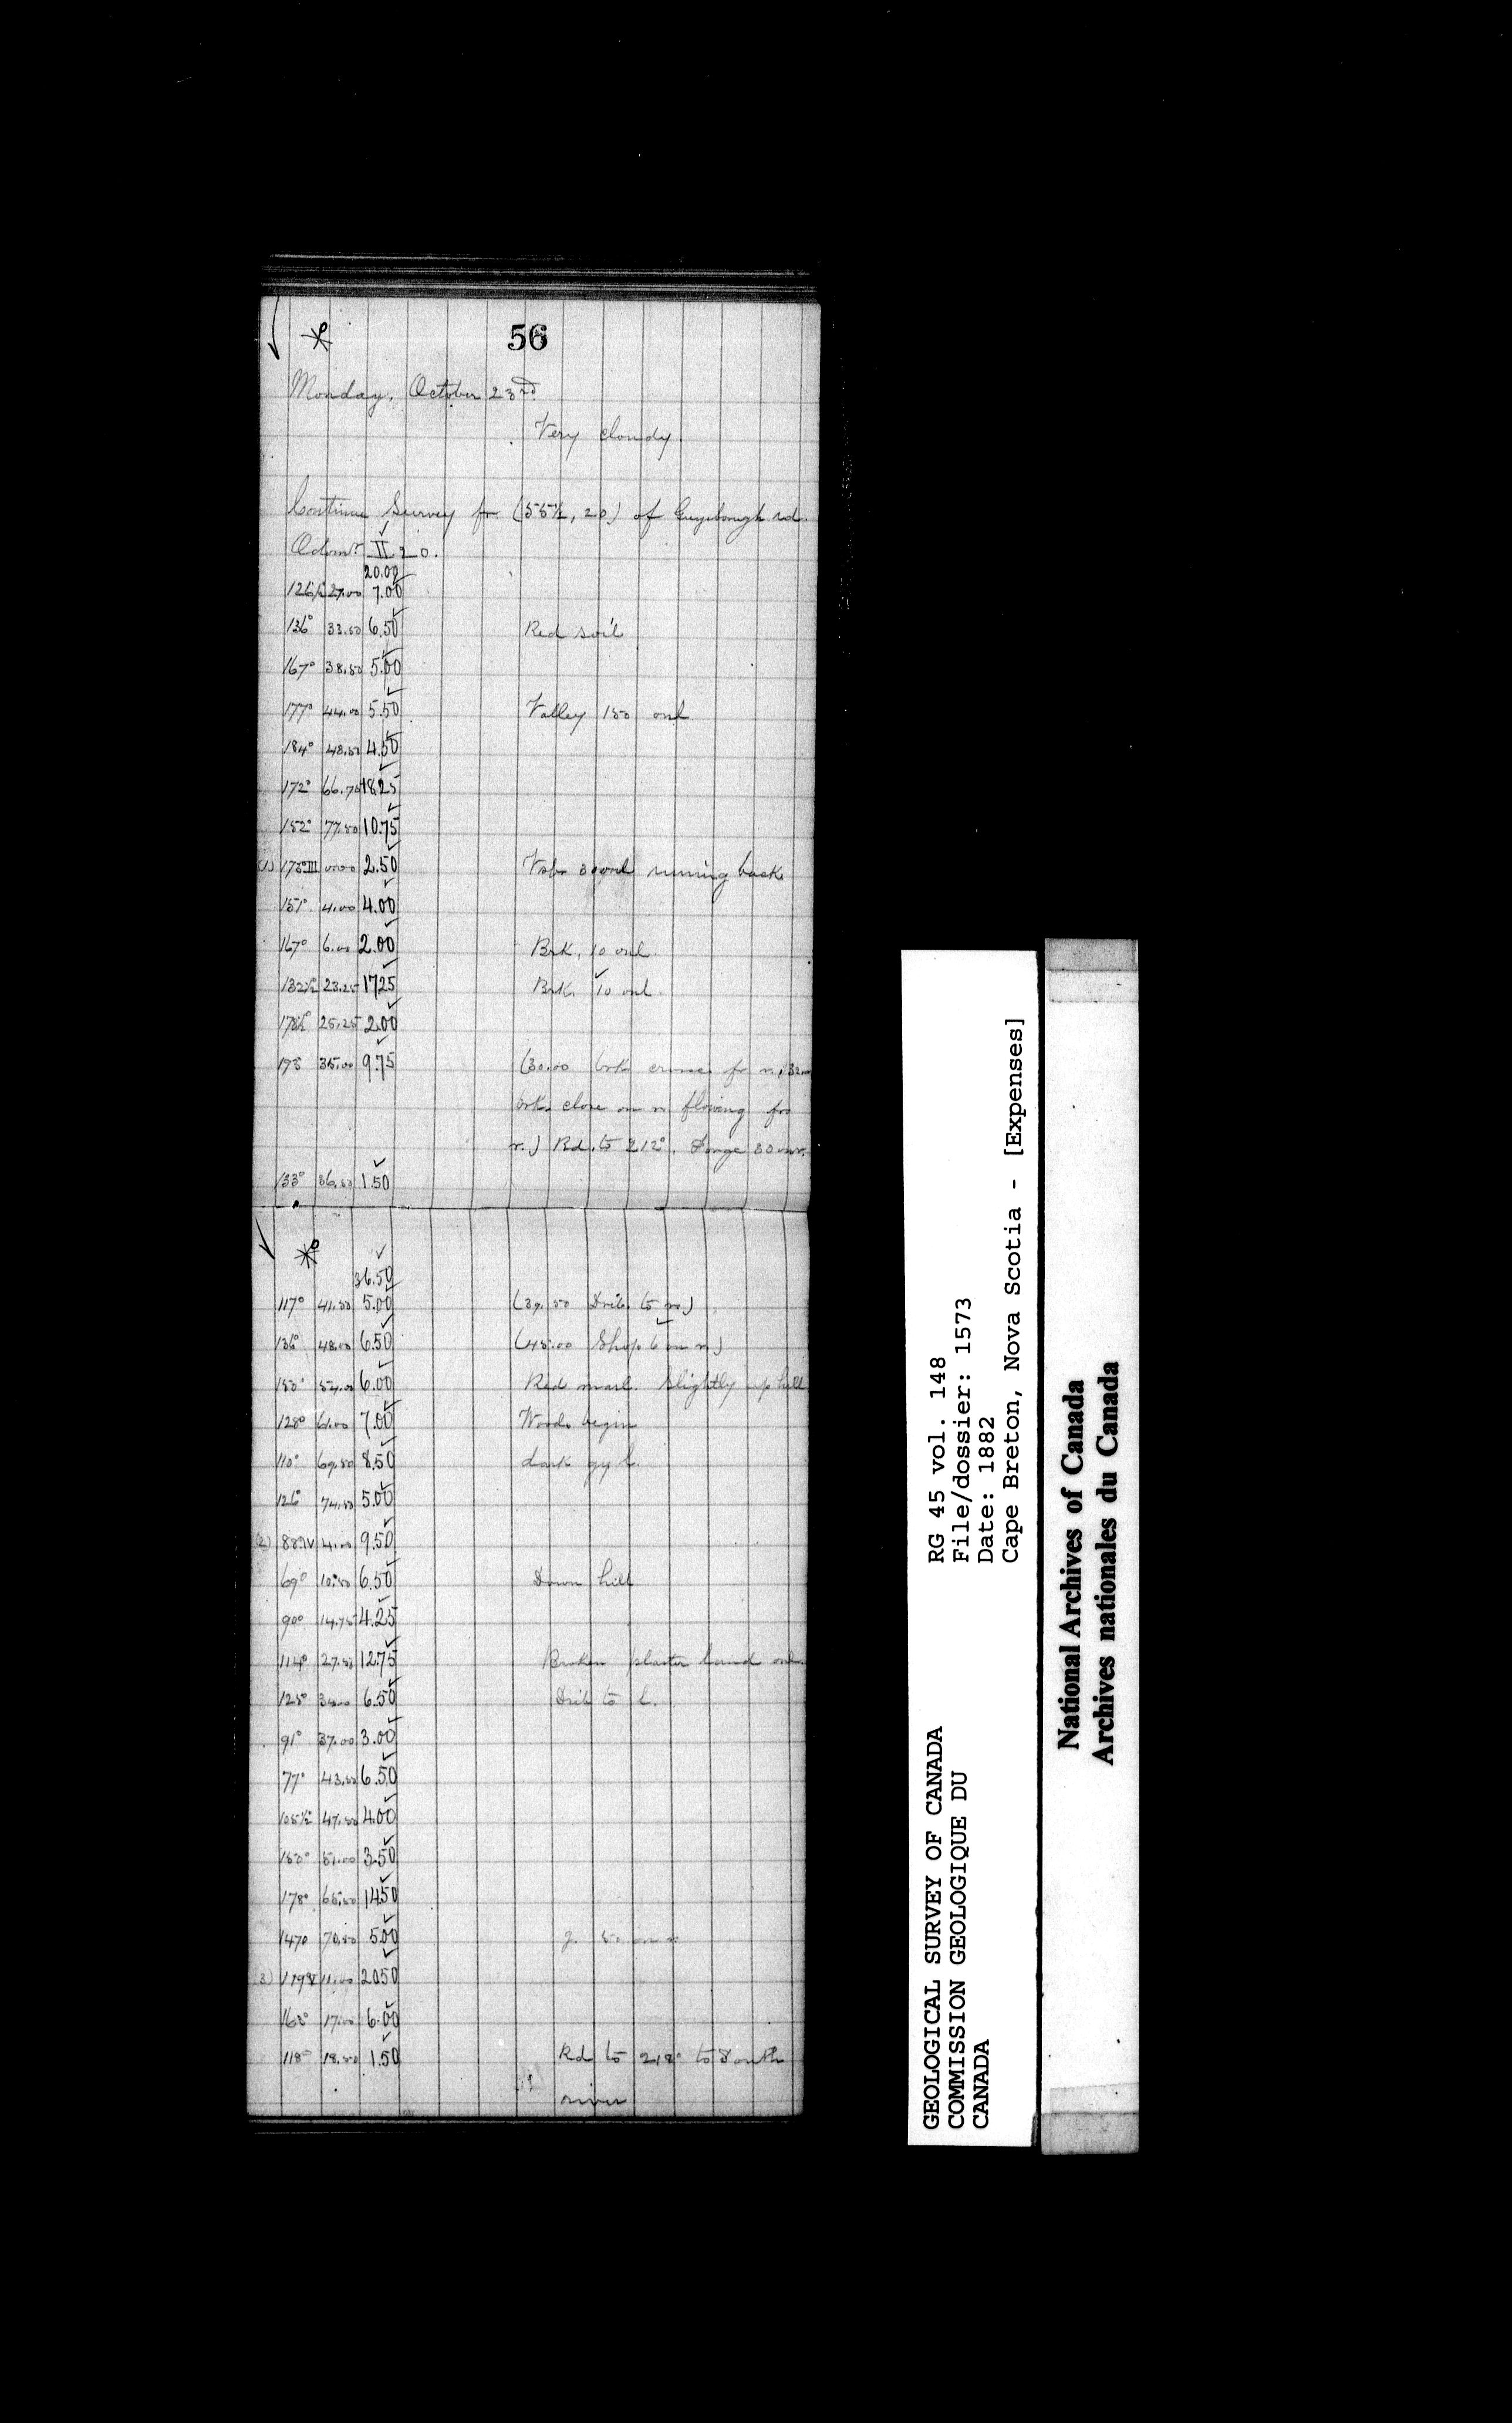 56
Monday, October 23rd
Very cloudy.
Continue Survey fr. (55½, 20) of Guysborough rd.
Odmr. II 20.
20.00
126½ 27.00 7.00
136° 33.50 6.50 Red soil
167° 38.50 5.00
177° 44.00 5.50 Valley 150 onl
184° 48.50 4.50
172° 66.75 18.25
152° 77.50 10.75
(1) 173° III 00.00 2.50 30 onl running back
151° 4.00 4.00
167° 6.00 2.00 Brk. 10 onl.
132½ 23.25 17.25 Brk. 10 onl.
178½° 25.25 2.00
193 35.00 9.75 (30.00 brk crosses fr r,
brk. close on r flowing fro
r.) Rd. to 212°. Forge 30 onr.
133° 36.50 1.50
36.50
117° 41.50 5.00 (39.50 Drib. to r)
136° 48.00 6.50 (45.00 Shop 6 on r)
150° 54.00 6.00 Red marl. Slightly up hill
128° 61.00 7.00 Woods begin
110° 69.50 8.50 dark gy l.
126° 74.50 5.00
(2) 88° IV 4.00 9.50
69° 10.50 6.50 Down hill
90° 14.75 4.25
114° 27.50 12.75 Broken plaster land
125° 34.00 6.50 Drib to l.
91° 37.00 3.00
77° 43.50 6.50
105½ 47.50 4.00
153° 51.00 3.50
178° 65.50 14.50
147° 70.50 5.00
(3) 119° V 11.00 20.50
163° 17.00 6.00
118° 18.50 1.50 Rd to 218° to South
river
RG 45 vol. 148
File/dossier: 1573
Date: 1882
Cape Breton, Nova Scotia - [Expenses]
GEOLOGICAL SURVEY OF CANADA
COMMISSION GEOLOGIQUE DU
CANADA
National Archives of Canada
Archives nationales du Canada